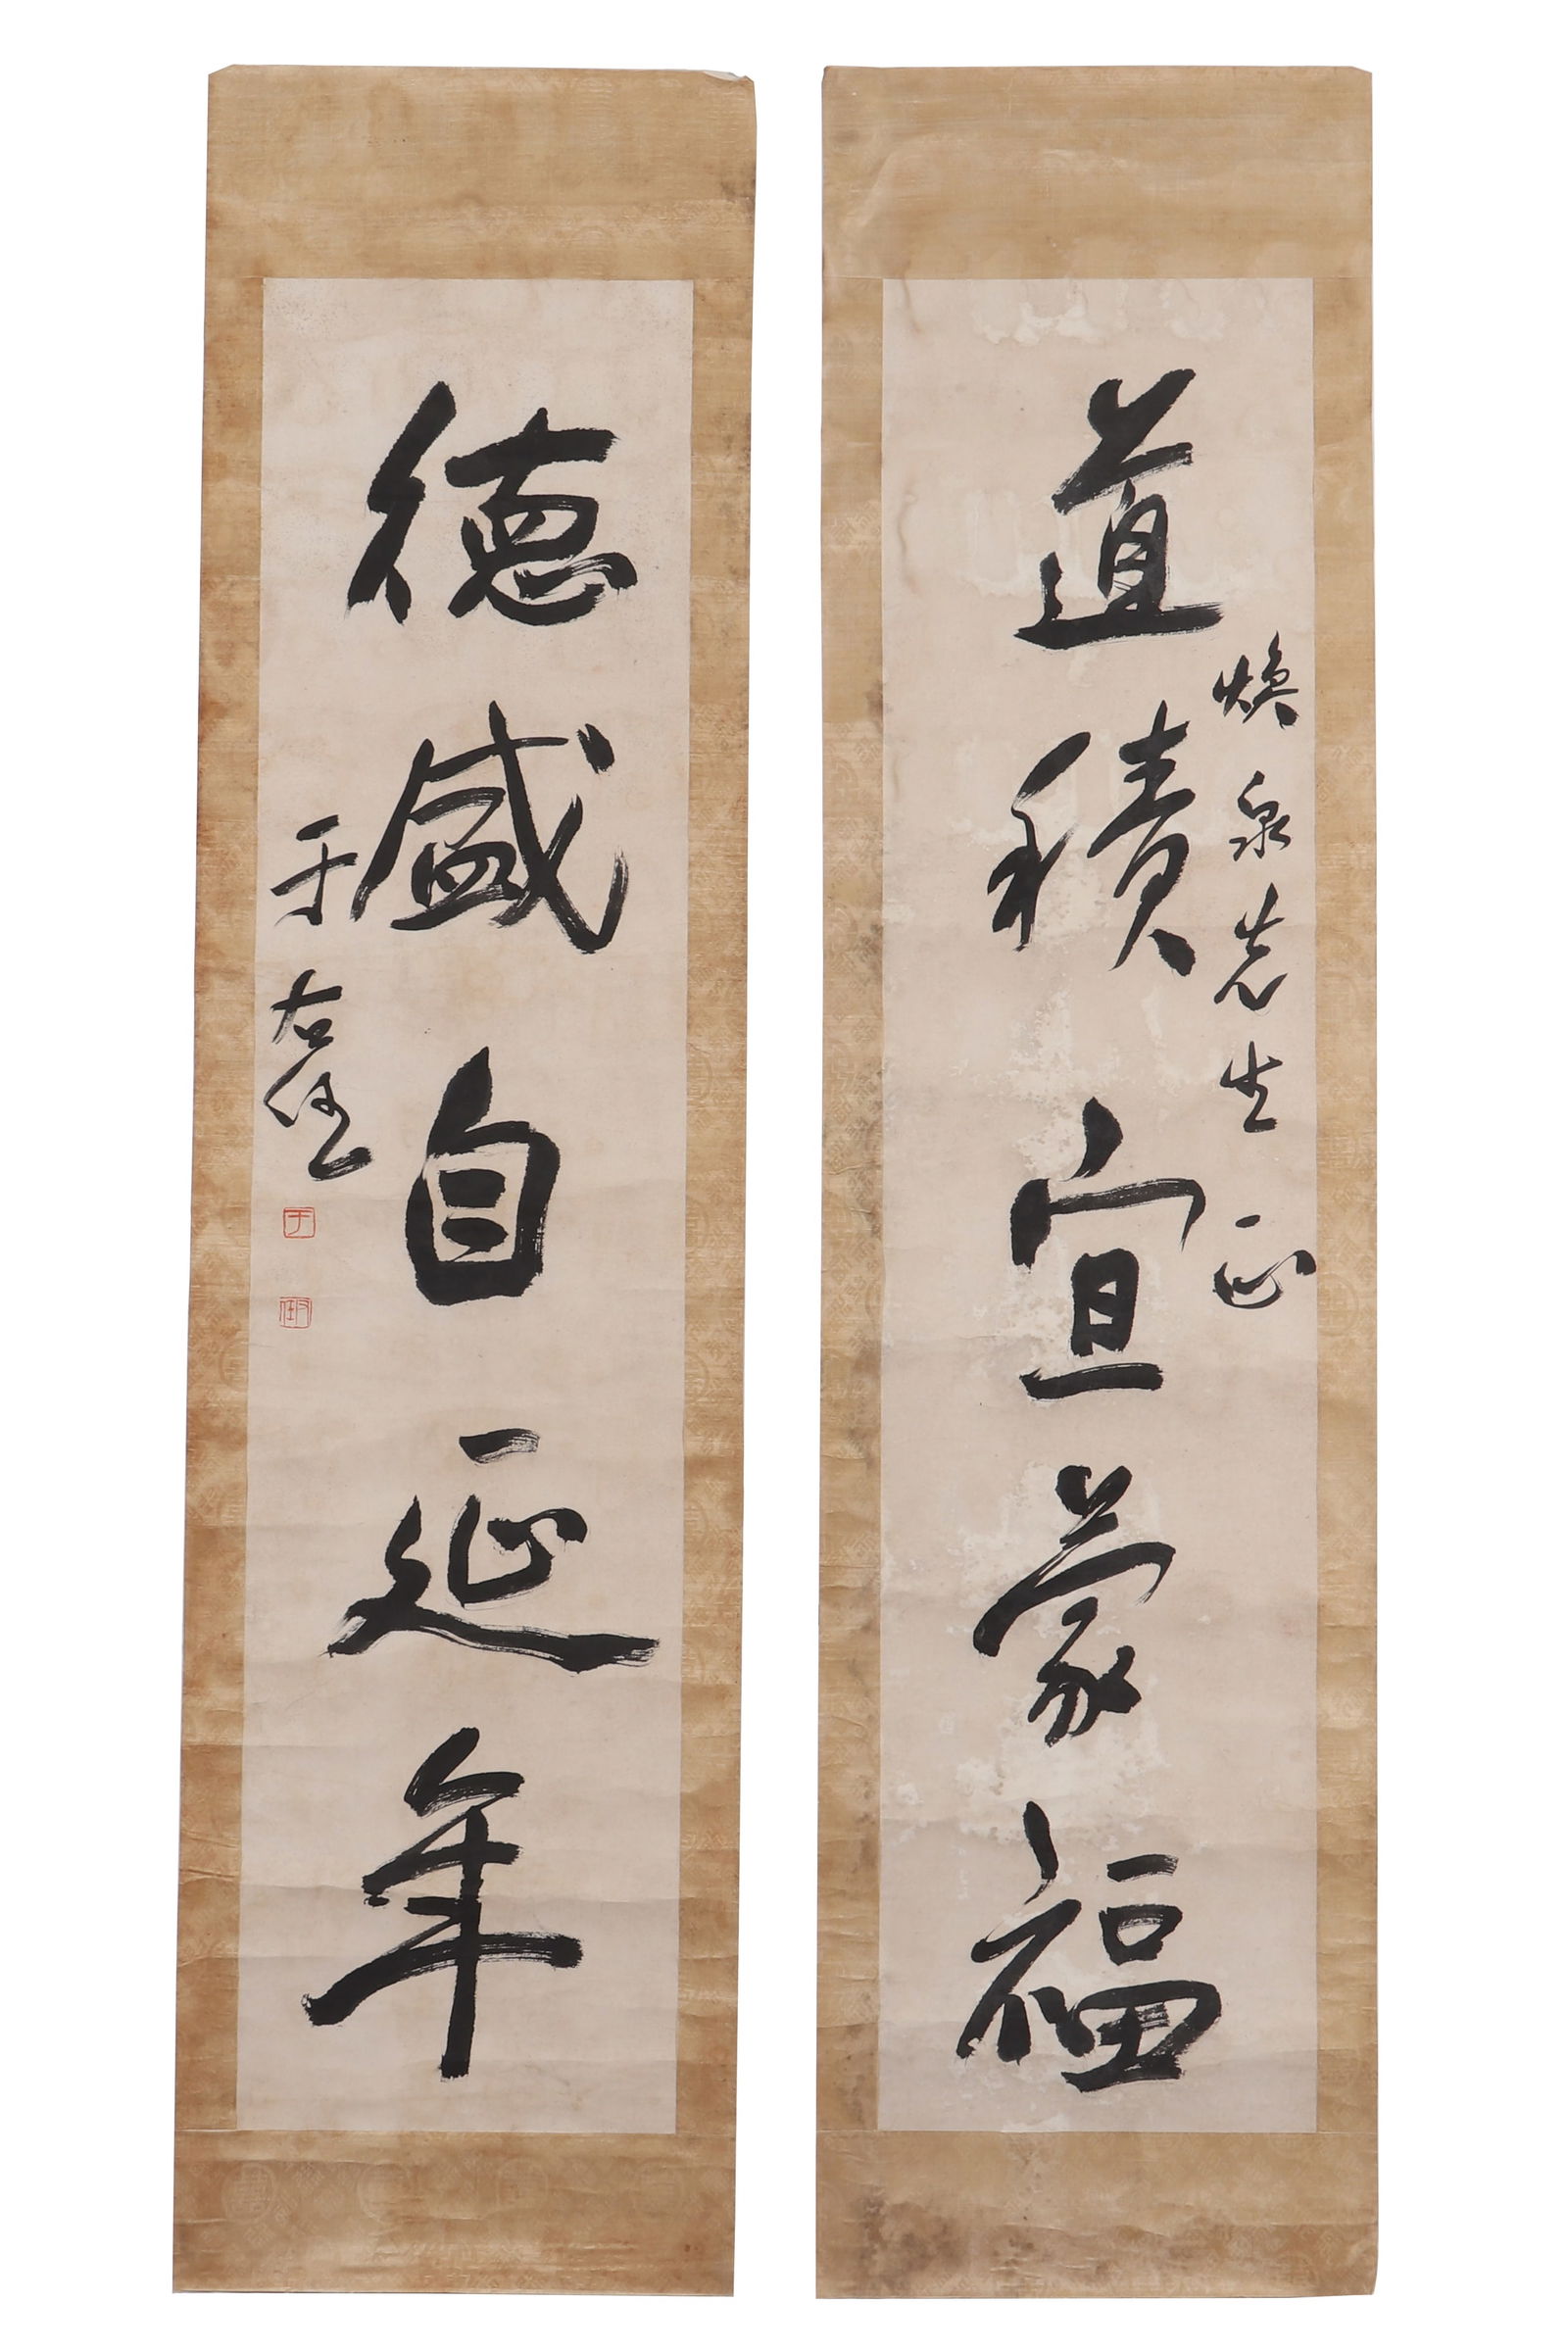 道積宣蒙福
煥泉先生正
德盛自延年
于右任
于
右任